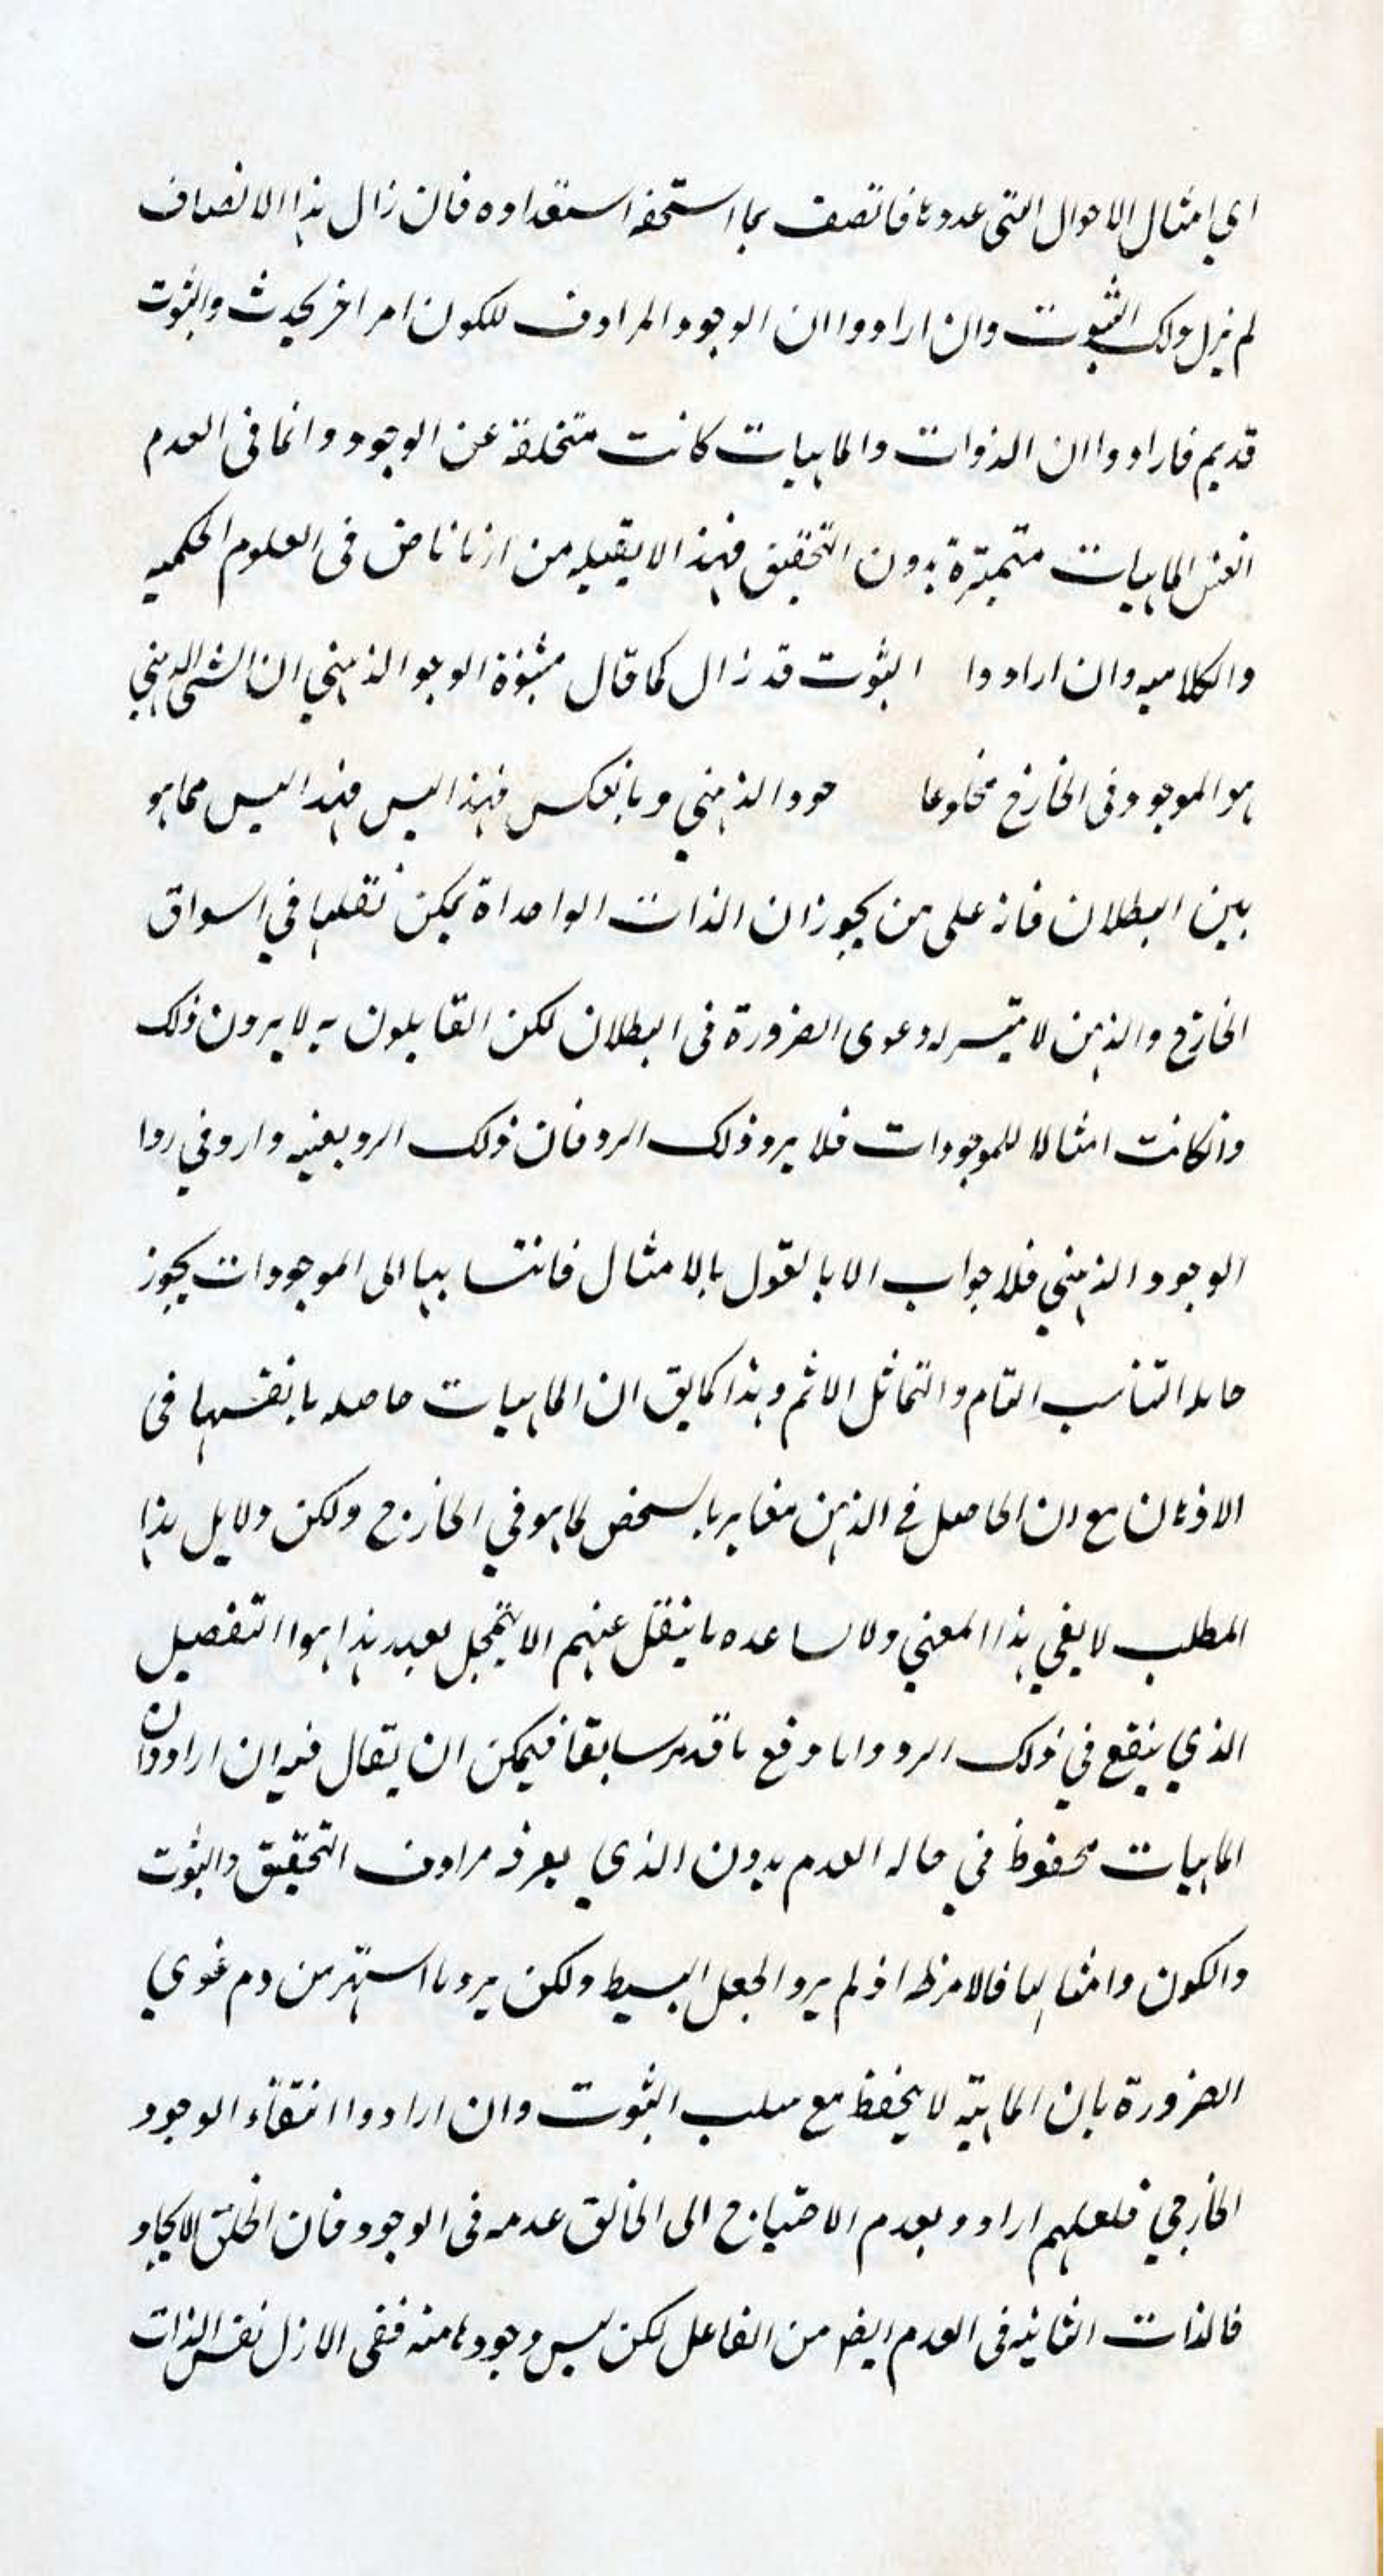 اي امثال الاحوال التى عدوها فاتصف بما استحقه استعداده فان زال هذا الاتصاف
لم يزل ذلك الثبوت وان ارادوا ان الوجود المرادف للكون امر اخر يحدث والثبوت
قديم فارادوا ان الذوات والماهيات كانت متخلفة عن الوجود وانما فى العدم
انفس الماهيات متميزة بدون التحقيق فهذا لا يقبله من ارتاض فى العلوم الحكميه
والكلاميه وان ارادوا الثبوت قد زال كما قال مثبتوة الوجو الذهني ان الشى الذهني
هو الموجود فى الخارج مخلوعا حود الذهني وبالعكس فهذا ليس فهذا ليس مما هو
بين البطلان فانه على من يجوز ان الذات الواحداة يمكن تقلبها في اسواق
الخارج والذهن لا يتيسر له دعوى الضرورة فى البطلان لكن القايلون به لا يرون ذلك
وان كانت امثالا للموجودات فلا يرد ذلك الرد فان ذلك الرد بعينه وارد في ردا
الوجود الذهني فلا جواب الا بالقول بالامثال فانتسابها الى الموجودات يجوز
التناسب التام والتماثل الاتم وهذا كما يق ان الماهيات حاصله بانفسها فى
الاذهان مع ان الحاصل في الذهن مغاير بالشخص لما هو في الخارج ولكن دلايل هذا
المطلب لا يفي بهذا المعني ولا يساعده ما ينقل عنهم الا بتمحل بعيد هذا هو التفصيل
الذي ينفع في ذلك الرد واما دفع ما قدمر سابقا فيمكن ان يقال فيه ان ارادوا ان
الماهيات محفوظ في حاله العدم بدون الذي يعرفه مرادف التحقيق والثبوت
والكون وامثالها فالامر ظ اذ لم يرد الجعل البسيط ولكن يرد ما اشتهر من دعوي
الضرورة بان الماهيته لا ينحفظ مع سلب الثبوت وان ارادوا انتفاء الوجود
الخارجي فلعلهم ارادو بعدم الاحتياج الى الخالق عدمه فى الوجود فان الخلق الايجاد
فالذات الثانيه فى العدم ايضر من الفاعل لكن ليس وجودها منه ففى الازل نفس الذات